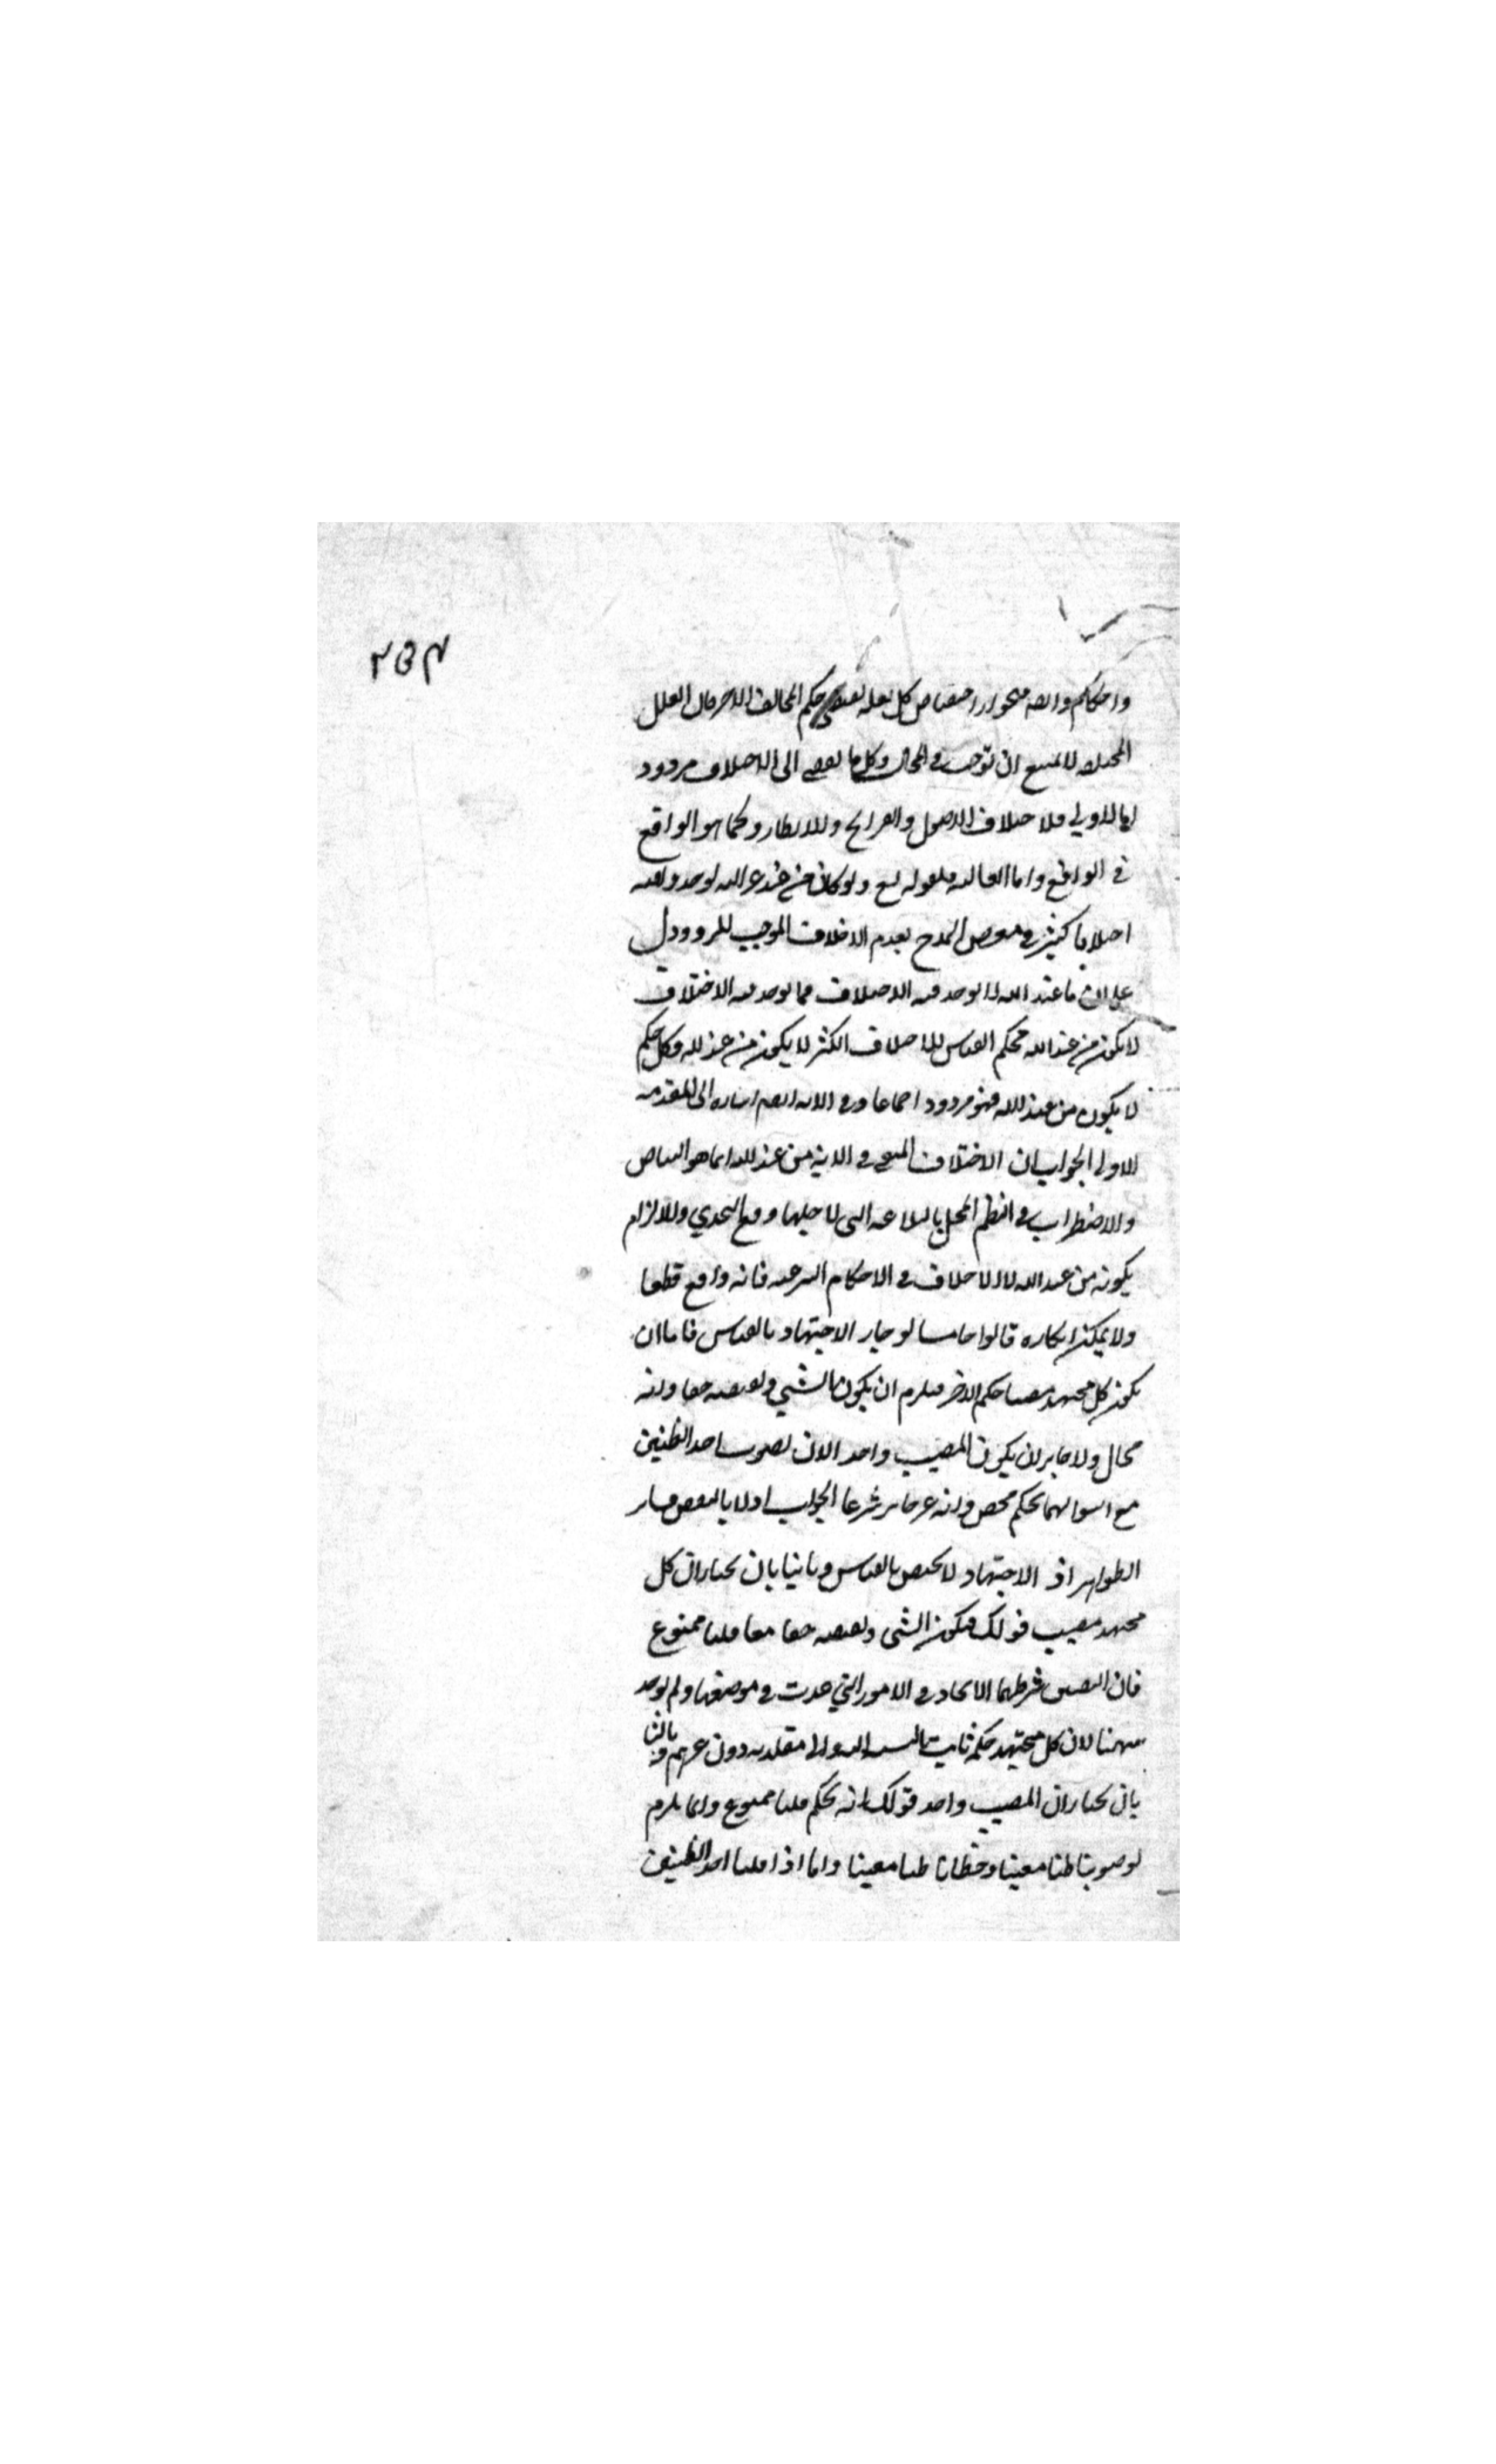 ٢٥٣
واحكام وايضه فيجوز اختصاص كل بعله تقتضي حكم المخالف الاخر فان العلل
المختلفه لا يمتنع ان توجب في المحال وكل ما يفضي الى الاختلاف مردود
اما الاولى فلاختلاف الاصول والقرائح والانظار وكما هو الواقع
في الواقع واما الثانيه فلقوله تع ولو كان من عند غير الله لوجدوا فيه
اختلافا كثيرا في معرض المدح بعدم الاختلاف الموجب للرد ودل
على ان ما عند الله لا يوجد فيه الاختلاف فما يوجد فيه الاختلاف
لا يكون من عند الله فحكم القياس للاختلاف الكثير لا يكون من عند الله وكل حكم
لا يكون من عند الله فهو مردود اجماعا وفي الايه ايضه اشاره الى المقدمه
الاولى الجواب ان الاختلاف المنفي في الاية من عند الله انما هو التناقض
والاضطراب في النظم المخل بالبلاغه التى لاجلها وقع التحدي والالزام
بكونه من عند الله لا الاختلاف في الاحكام الشرعيه فانه واقع قطعا
ولا يمكن انكاره قالوا خامسا لو جاز الاجتهاد بالقياس فاما ان
يكون كل مجتهد مصيبا حكم الاخر فيلزم ان يكون الشي ونقيضه حقا وانه
محال ولا جايز ان يكون المصيب واحد الان تصويب احد الظنين
مع استوائهما تحكم محض وانه غير جايز شرعا الجواب اولا بالنقض بساير
الظواهر اذ الاجتهاد لا يختص بالقياس وثانيا بان نختار ان كل
مجتهد مصيب قولك فيكون الشى ونقيضه حقا معا قلنا ممنوع
فان النقيضين شرطهما الاتحاد في الامور التي عدت في موضعها ولم يوجد
ههنا لان كل مجتهد حكمه ثابت بالنسبه اليه والى مقلديه دون غيرهم وثالثا
بان نختار ان المصيب واحد قولك انه تحكم قلنا ممنوع وانما يلزم
لو صوبنا ظنا معينا وخطانا ظنا معينا واما اذا قلنا احد الظنين